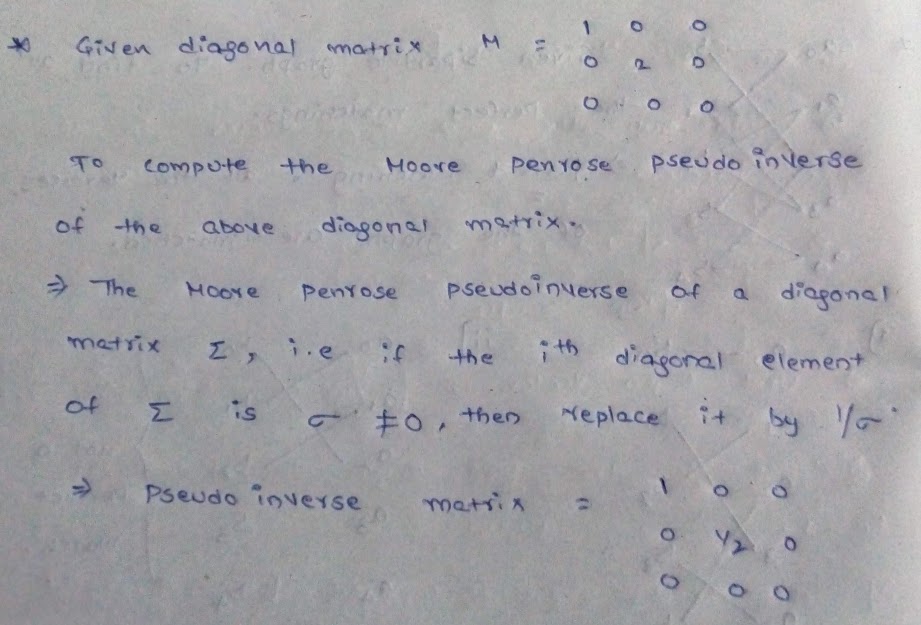 * Given diagonal matrix M = 1 0 0
0 2 0
0 0 0
To compute the Moore penrose pseudo inverse
of the above diagonal matrix.
⇒ The Moore penrose pseudoinverse of a diagonal
matrix Σ, i.e if the ith diagonal element
of Σ is σ ≠ 0, then replace it by 1/σ
⇒ Pseudo inverse matrix = 1 0 0
0 1/2 0
0 0 0